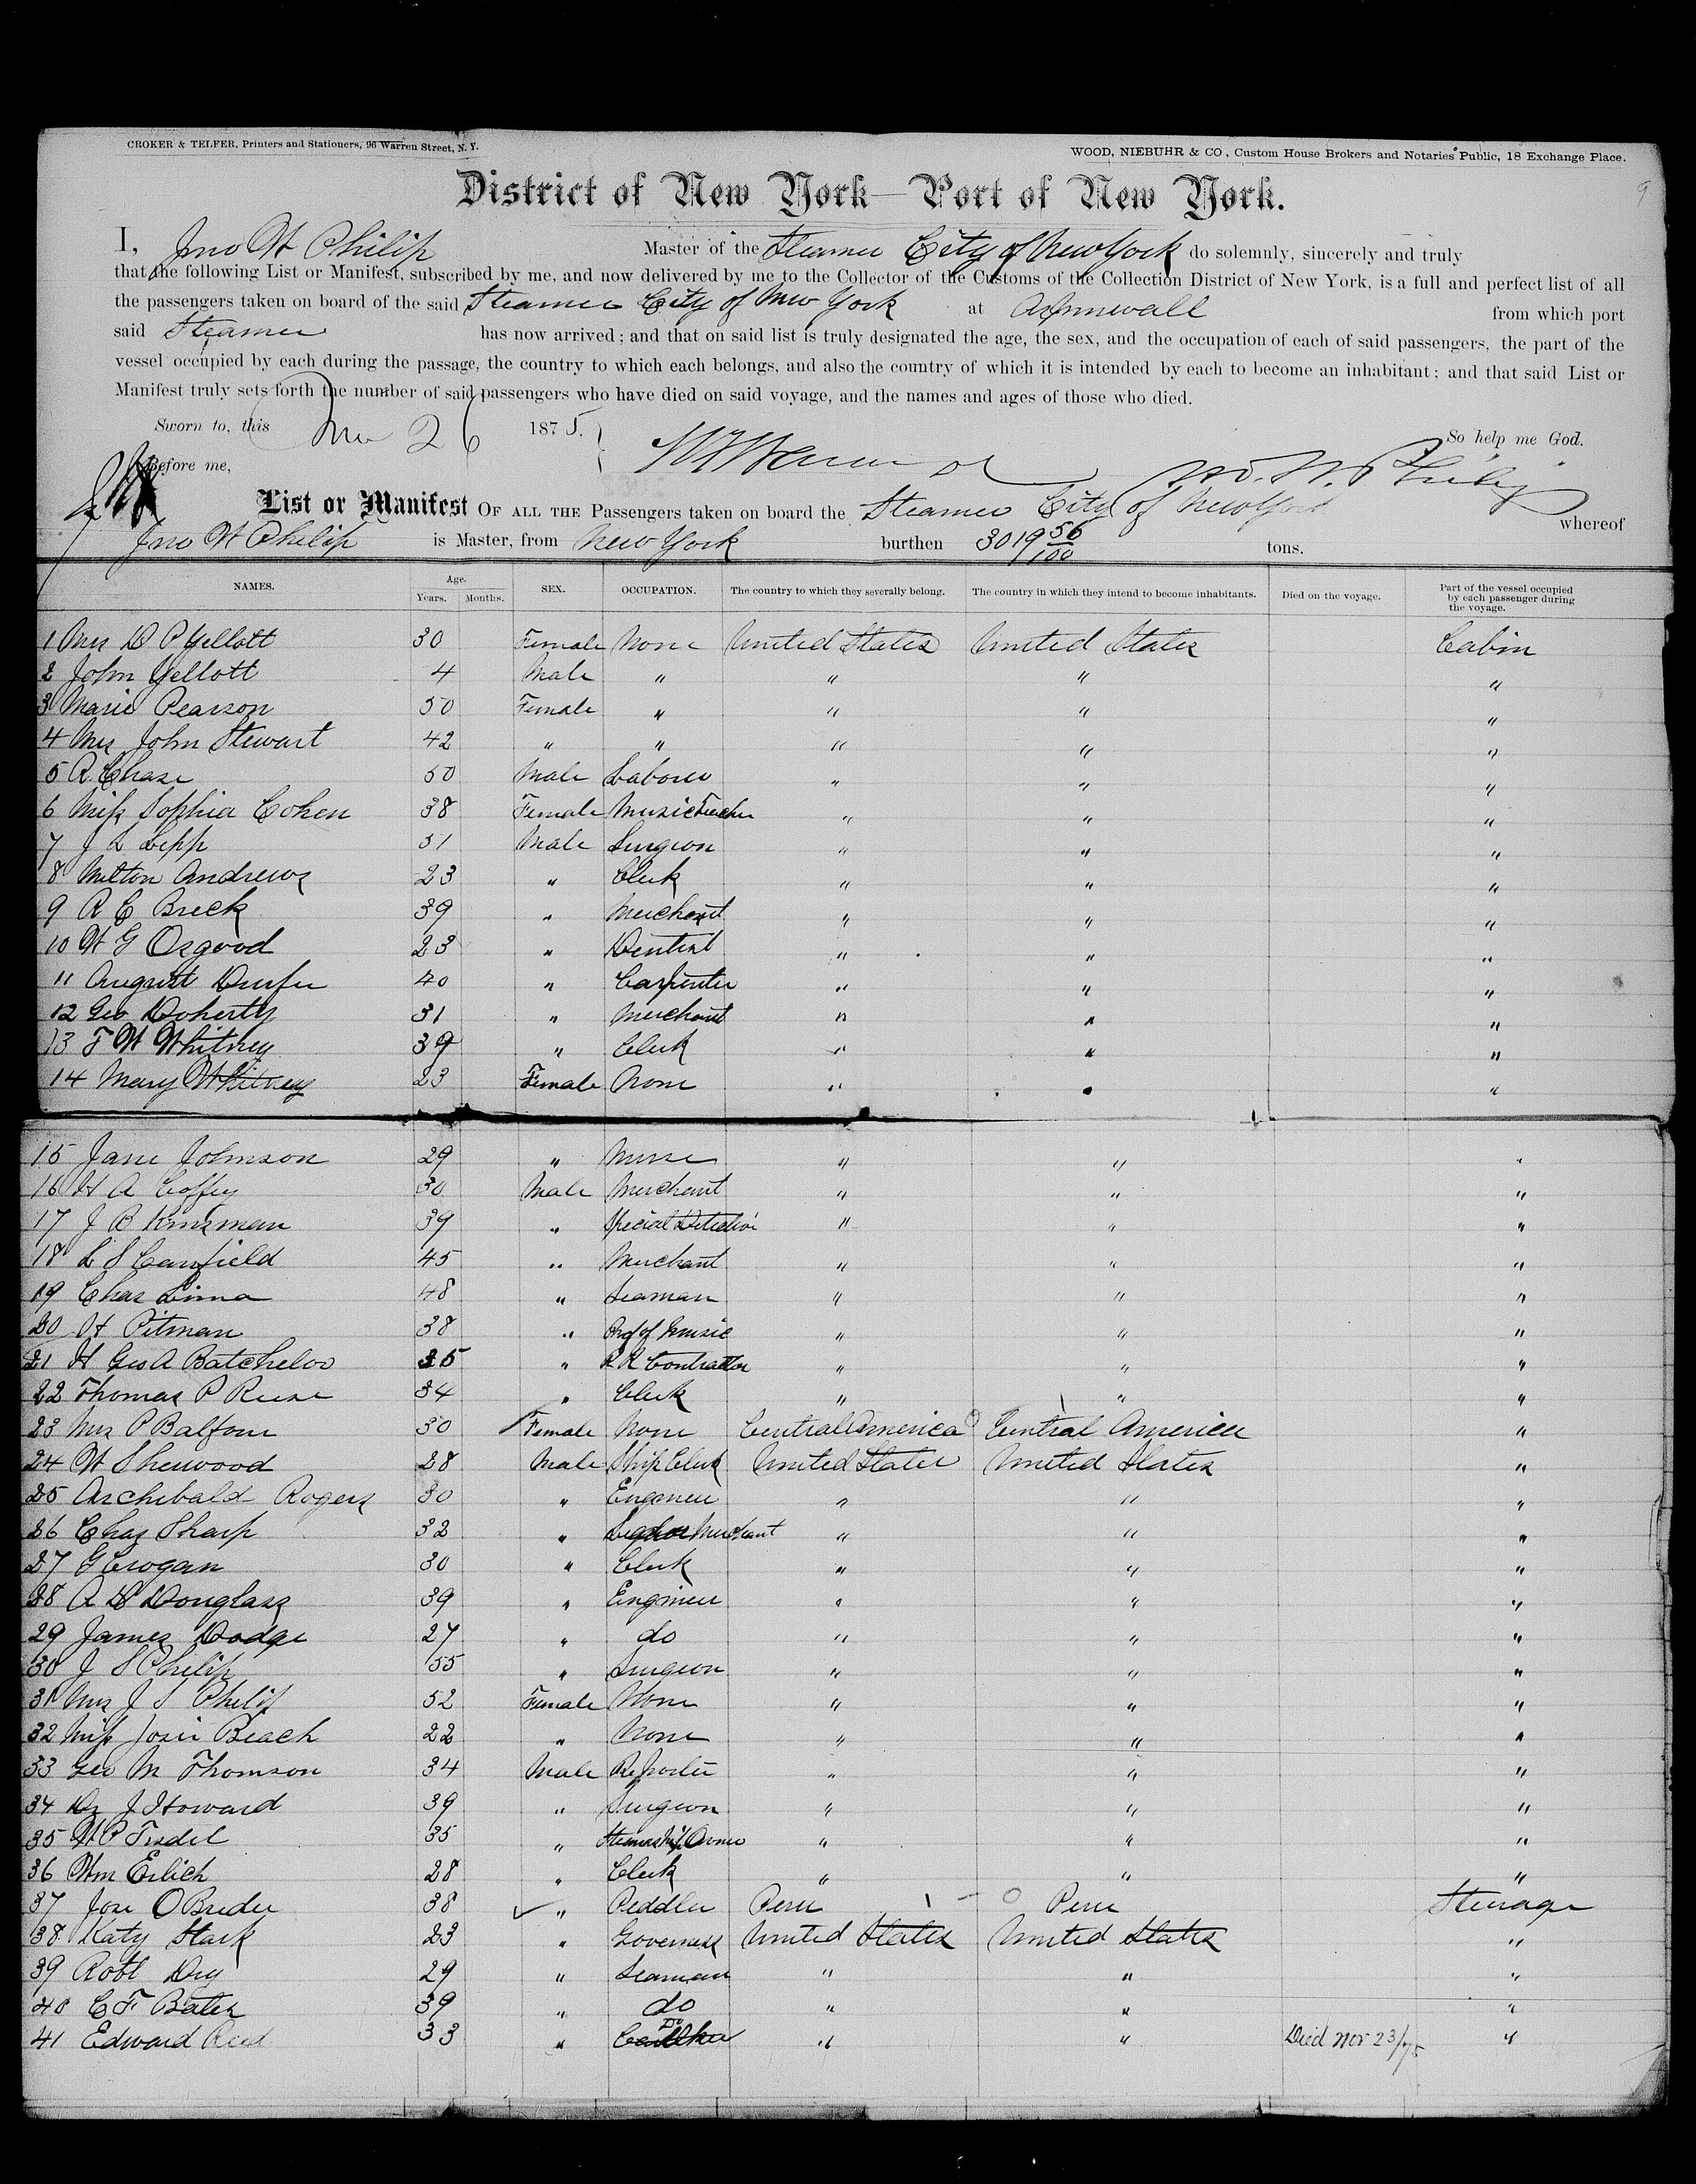 CROKER & TELFER, Printers and Stationers, 96 Warren Street, N. Y.
WOOD, NIEBUHR & CO, Custom House Brokers and Notaries Public, 18 Exchange Place.
9
District of New York—Port of New York.
I, Jno W Philip Master of the Steamer City of New York do solemnly, sincerely and truly
that the following List or Manifest, subscribed by me, and now delivered by me to the Collector of the Customs of the Collection District of New York, is a full and perfect list of all
the passengers taken on board of the said Steamer City of New York at Aspinwall from which port
said Steamer has now arrived; and that on said list is truly designated the age, the sex, and the occupation of each of said passengers, the part of the
vessel occupied by each during the passage, the country to which each belongs, and also the country of which it is intended by each to become an inhabitant; and that said List or
Manifest truly sets forth the number of said passengers who have died on said voyage, and the names and ages of those who died.
Sworn to, this Nov 26 1875. So help me God.
Before me, Jno. W. Philip
List or Manifest OF ALL THE Passengers taken on board the Steamer City of New York whereof
Jno W Philip is Master, from New York burthen 3019 56/100 tons.
NAMES. Age. Years. Months. SEX. OCCUPATION. The country to which they severally belong. The country in which they intend to become inhabitants. Died on the voyage. Part of the vessel occupied by each passenger during the voyage.
1 Mrs D P Yellott 30 Female None United States United States Cabin
2 John Yellott 4 Male " " " "
3 Marie Pearson 50 Female " " " "
4 Mrs John Stewart 42 " " " " "
5 R. Chase 50 Male Laborer " " "
6 Miss Sophia Cohen 38 Female Music Teacher " " "
7 J L Lepp 51 Male Surgeon " " "
8 Milton Andrews 23 " Clerk " " "
9 R C Breck 39 " Merchant " " "
10 W G Osgood 23 " Dentist " " "
11 August 40 " Carpenter " " "
12 Geo Doherty 31 " Merchant " " "
13 F W Whitney 39 " Clerk " " "
14 Mary Whitney 23 Female None " " "
15 Jane Johnson 29 " Nurse " " "
16 H A Coffey 30 Male Merchant " " "
17 J B Kinsman 39 " Special Detective " " "
18 L S Canfield 45 " Merchant " " "
19 Chas Lima 48 " Seaman " " "
20 H Pitman 38 " Prof of Music " " "
21 H Geo A Batchelor 35 " R R Contractor " " "
22 Thomas P Reese 34 " Clerk " " "
23 Mrs P Balfour 30 Female None Central America Central America "
24 W Sherwood 28 Male Ship Clerk United States United States "
25 Archibald Rogers 30 " Engineer " " "
26 Chas Sharp 32 " Liquor Merchant " " "
27 G Crogan 30 " Clerk " " "
28 A D Douglass 39 " Engineer " " "
29 James Dodge 27 " do " " "
30 J S Philip 55 " Surgeon " " "
31 Mrs J S Philip 52 Female None " " "
32 Miss Josie Beach 22 " None " " "
33 Geo M Thomson 34 Male Reporter " " "
34 Dr J Howard 39 " Surgeon " " "
35 W P 35 " Steamship Owner " " "
36 Wm Erlich 28 " Clerk " " "
37 Jose O 38 " Peddler Peru Peru Steerage
38 Katy Stark 23 " Governess United States United States "
39 Robt Dry 29 " Seaman " " "
40 C F Bates 39 " do " " "
41 Edward Reed 33 " Do " " Died Nov 23/75 "